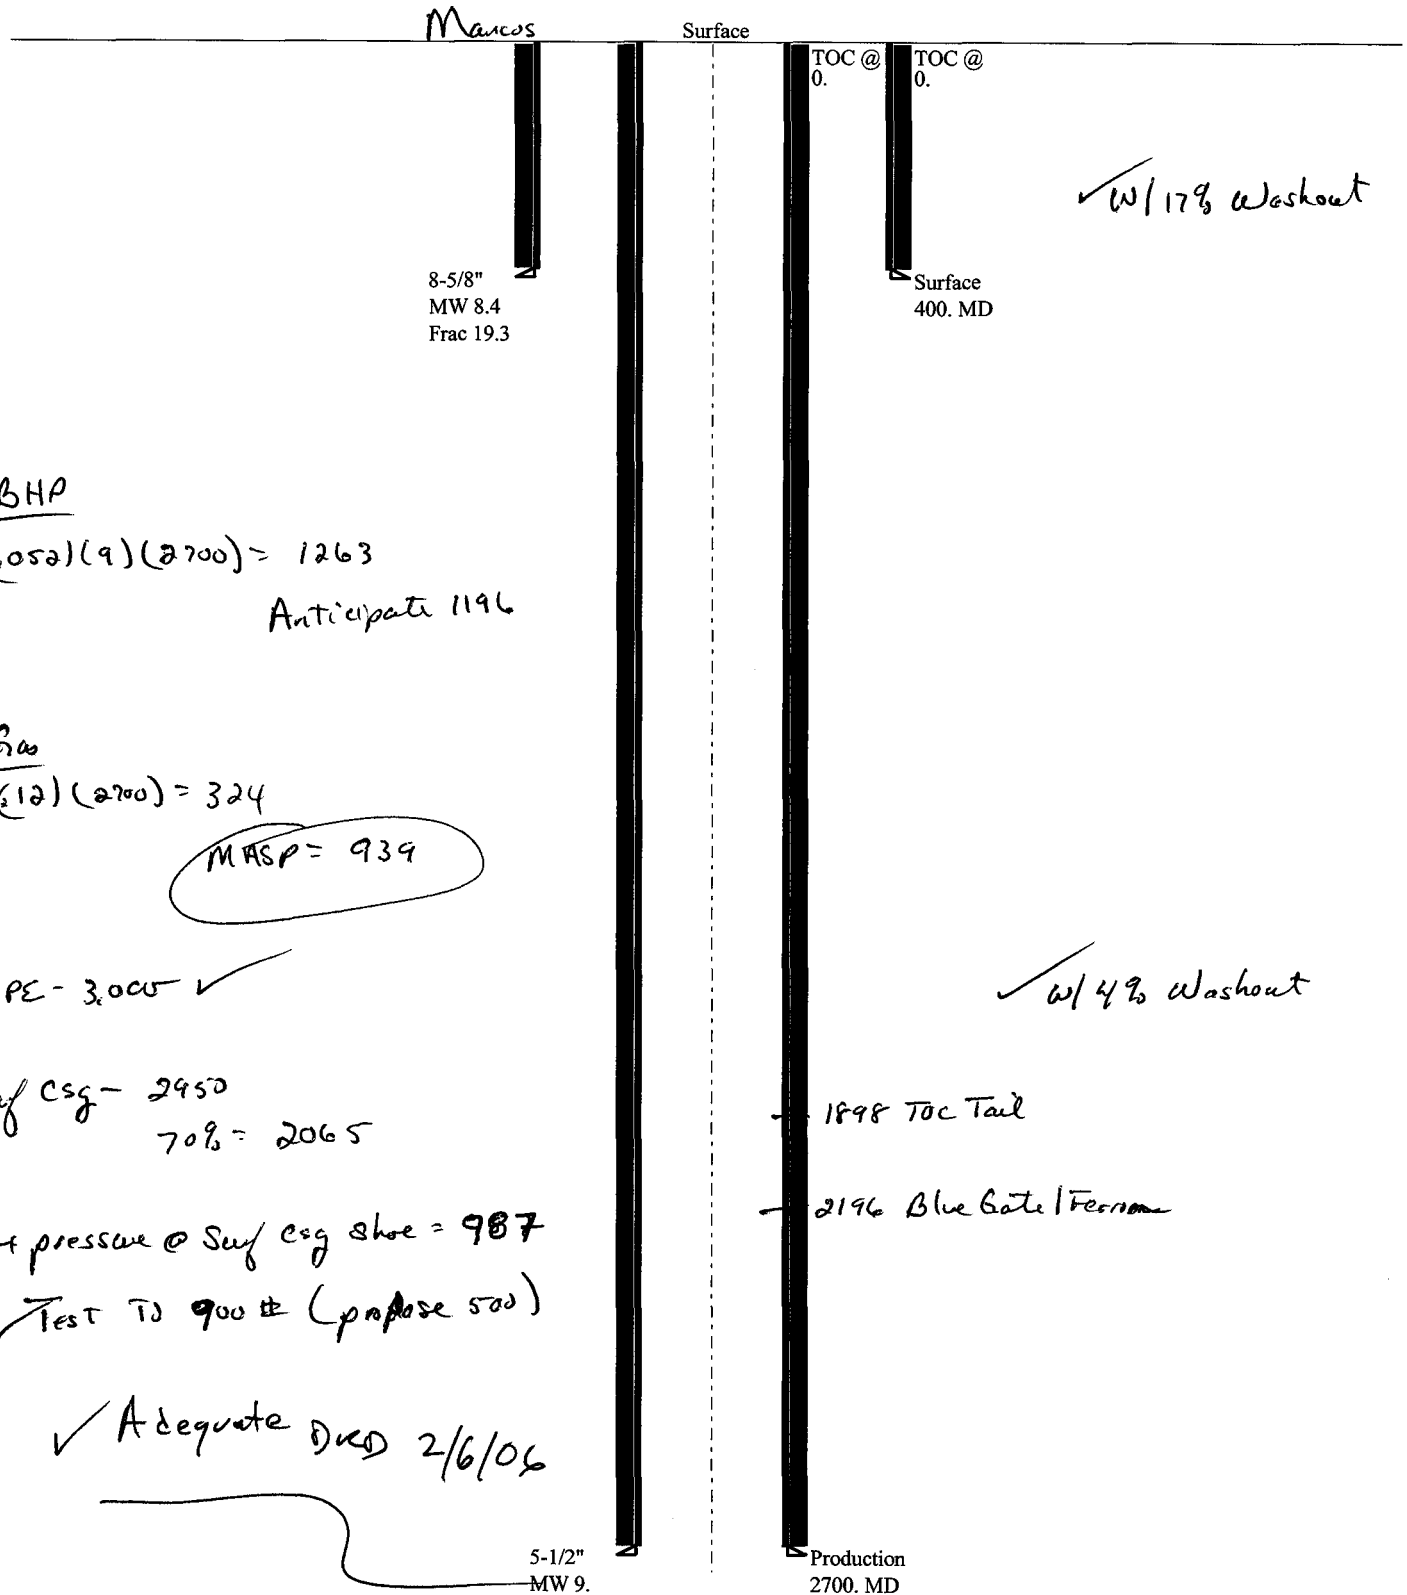 Mancos
Surface
TOC @
0.
TOC @
0.
✓ w/ 17% Washout
8-5/8"
MW 8.4
Frac 19.3
Surface
400. MD
BHP
.052)(9)(2700) = 1263
Anticipate 1196
Gas
(.12)(2700) = 324
MASP = 939
PE - 3,000 ✓
✓ w/ 4% Washout
Csg - 2950
70% = 2065
1898 TOC Tail
2196 Blue Gate/Ferron
pressure @ Surf csg shoe = 987
✓ Test To 900# (propose 500)
✓ Adequate DKD 2/6/06
5-1/2"
MW 9.
Production
2700. MD